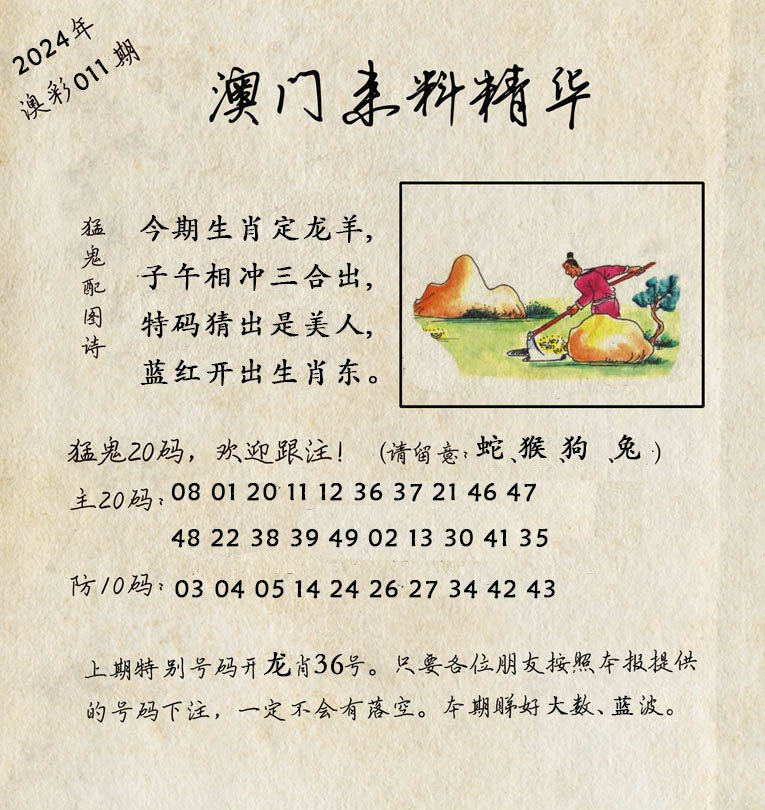 2024年
澳彩011期
澳门来料精华
猛鬼配图诗
今期生肖定龙羊，
子午相冲三合出，
特码猜出是美人，
蓝红开出生肖东。
猛鬼20码，欢迎跟注！（请留意：蛇、猴、狗、兔）
主20码：08 01 20 11 12 36 37 21 46 47
48 22 38 39 49 02 13 30 41 35
防10码：03 04 05 14 24 26 27 34 42 43
上期特别号码开龙肖36号。只要各位朋友按照本报提供
的号码下注，一定不会有落空。本期睇好大数、蓝波。